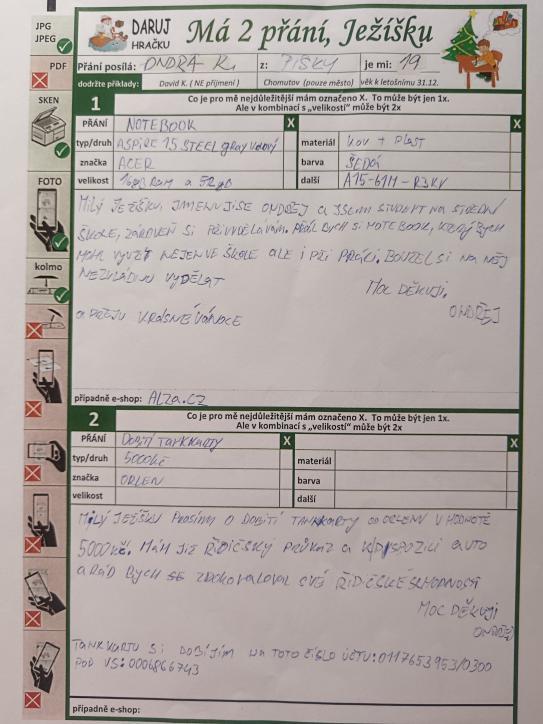 JPG
JPEG
PDF
SKEN
FOTO
kolmo
DARUJ
HRAČKU
Má 2 přání, Ježíšku
Přání posílá: ONDRA K. z: PÍSKY je mi: 19
dodržte příklady: David K. ( NE příjmení ) Chomutov (pouze město) věk k letošnímu 31.12.
1 Co je pro mě nejdůležitější mám označeno X. To může být jen 1x.
Ale v kombinaci s „velikostí“ může být 2x
PŘÁNÍ NOTEBOOK X X
typ/druh ASPIRE 15 STEEL gray kovový materiál kov + plast
značka ACER barva ŠEDÁ
velikost 16GB RAM a 512GB další A15-61M-R3KY
MILÝ JEŽÍŠKU, JMENUJI SE ONDŘEJ a JSEM STUDENT NA STŘEDNÍ
ŠKOLE, ZÁROVEŇ SI PŘIVYDĚLÁVÁM. PŘÁL BYCH SI NOTEBOOK, KTERÝ BYCH
MOHL VYUŽÍT NEJEN VE ŠKOLE ALE i PŘI PRÁCI. BOHUŽEL SI NA NĚJ
NEZVLÁDNU VYDĚLAT
MOC DĚKUJI.
ONDŘEJ
a PŘEJU KRÁSNÉ VÁNOCE
případně e-shop: ALZA.CZ
2 Co je pro mě nejdůležitější mám označeno X. To může být jen 1x.
Ale v kombinaci s „velikostí“ může být 2x
PŘÁNÍ DOBITÍ TANKKARTY X X
typ/druh 5000Kč materiál
značka ORLEN barva
velikost další
MILÝ JEŽÍŠKU PROSÍM O DOBITÍ TANKKARTY OD ORLENU V HODNOTĚ
5000Kč. MÁM JIŽ ŘIDIČSKÝ PRŮKAZ a K DISPOZICI AUTO
a RÁD BYCH SE ZDOKONALOVAL SVÉ ŘIDIČSKÉ SCHOPNOSTI
MOC DĚKUJI
ONDŘEJ
TANKKARTU SI DOBÍJÍM NA TOTO ČÍSLO ÚČTU: 0117653953/0300
POD VS: 0006866743
případně e-shop: